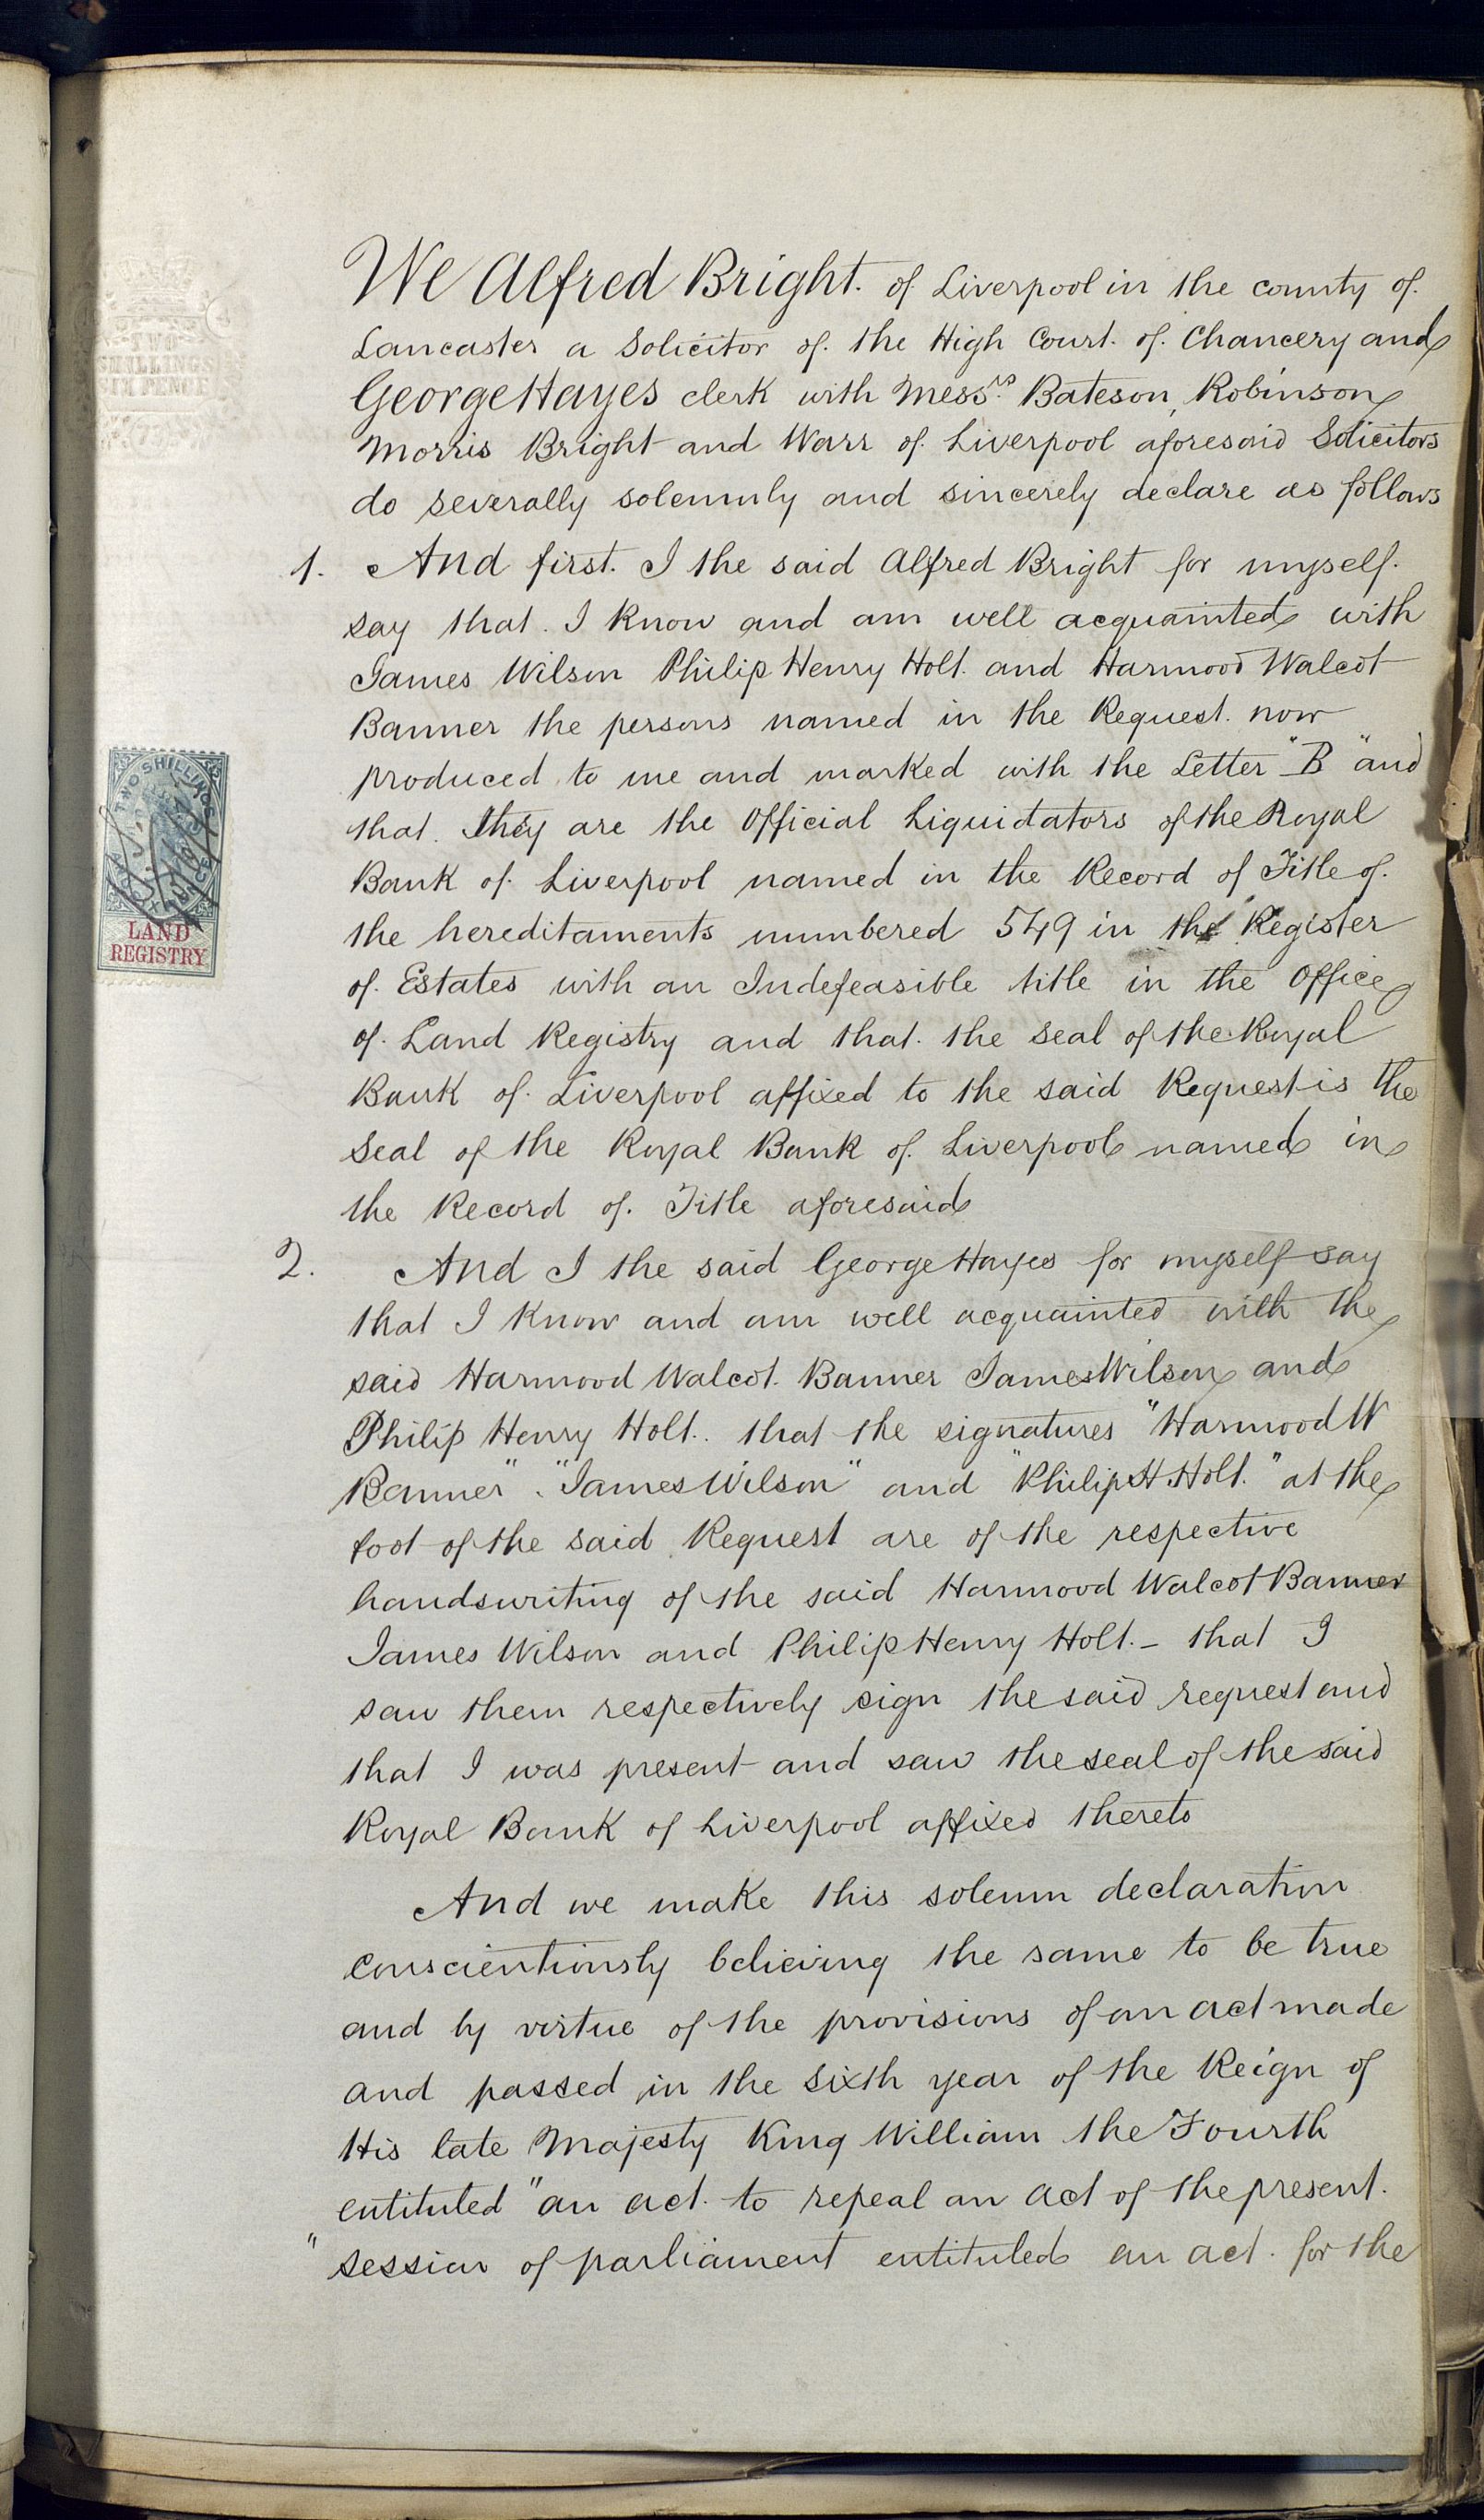 TWO
SHILLINGS
SIX PENCE
We Alfred Bright. of Liverpool in the county of.
Lancaster a Solicitor of. the High Court. of. Chancery and
George Hayes clerk with Mess.rs Bateson, Robinson
Morris Bright and Warr of. Liverpool aforesaid Solicitors
do severally solemnly and sincerely declare as follows
1. And first. I the said Alfred Bright for myself.
say that. I know and am well acquainted with
James Wilson Philip Henry Holt. and Harmood Walcot
Banner the persons named in the Request. now
produced to me and marked with the Letter "B" and
that. they are the Official Liquidators of the Royal
Bank of. Liverpool named in the Record of Title of.
the hereditaments numbered 549 in the Register
of. Estates with an Indefeasible title in the Office
of. Land Registry and that. the seal of the Royal
Bank of. Liverpool affixed to the said Request is the
Seal of the Royal Bank of. Liverpool named in
the Record of. Title aforesaid
2. And I the said George Hayes for myself say
that I know and am well acquainted with the
said Harmood Walcot. Banner James Wilson and
Philip Henry Holt.. that the signatures "Harmood W
Banner". "James Wilson" and "Philip H Holt." at the
foot of the said Request are of the respective
handswriting of the said Harmood Walcot Banner
James Wilson and Philip Henry Holt. - that I
saw them respectively sign the said request and
that I was present and saw the seal of the said
Royal Bank of Liverpool affixed thereto
And we make this solemn declaration
conscientiously believing the same to be true
and by virtue of the provisions of an act made
and passed in the sixth year of the Reign of
His late Majesty King William the Fourth
entituled "an act. to repeal an act of the present.
"session of parliament entituled an act. for the
TWO SHILLINGS
LAND
REGISTRY